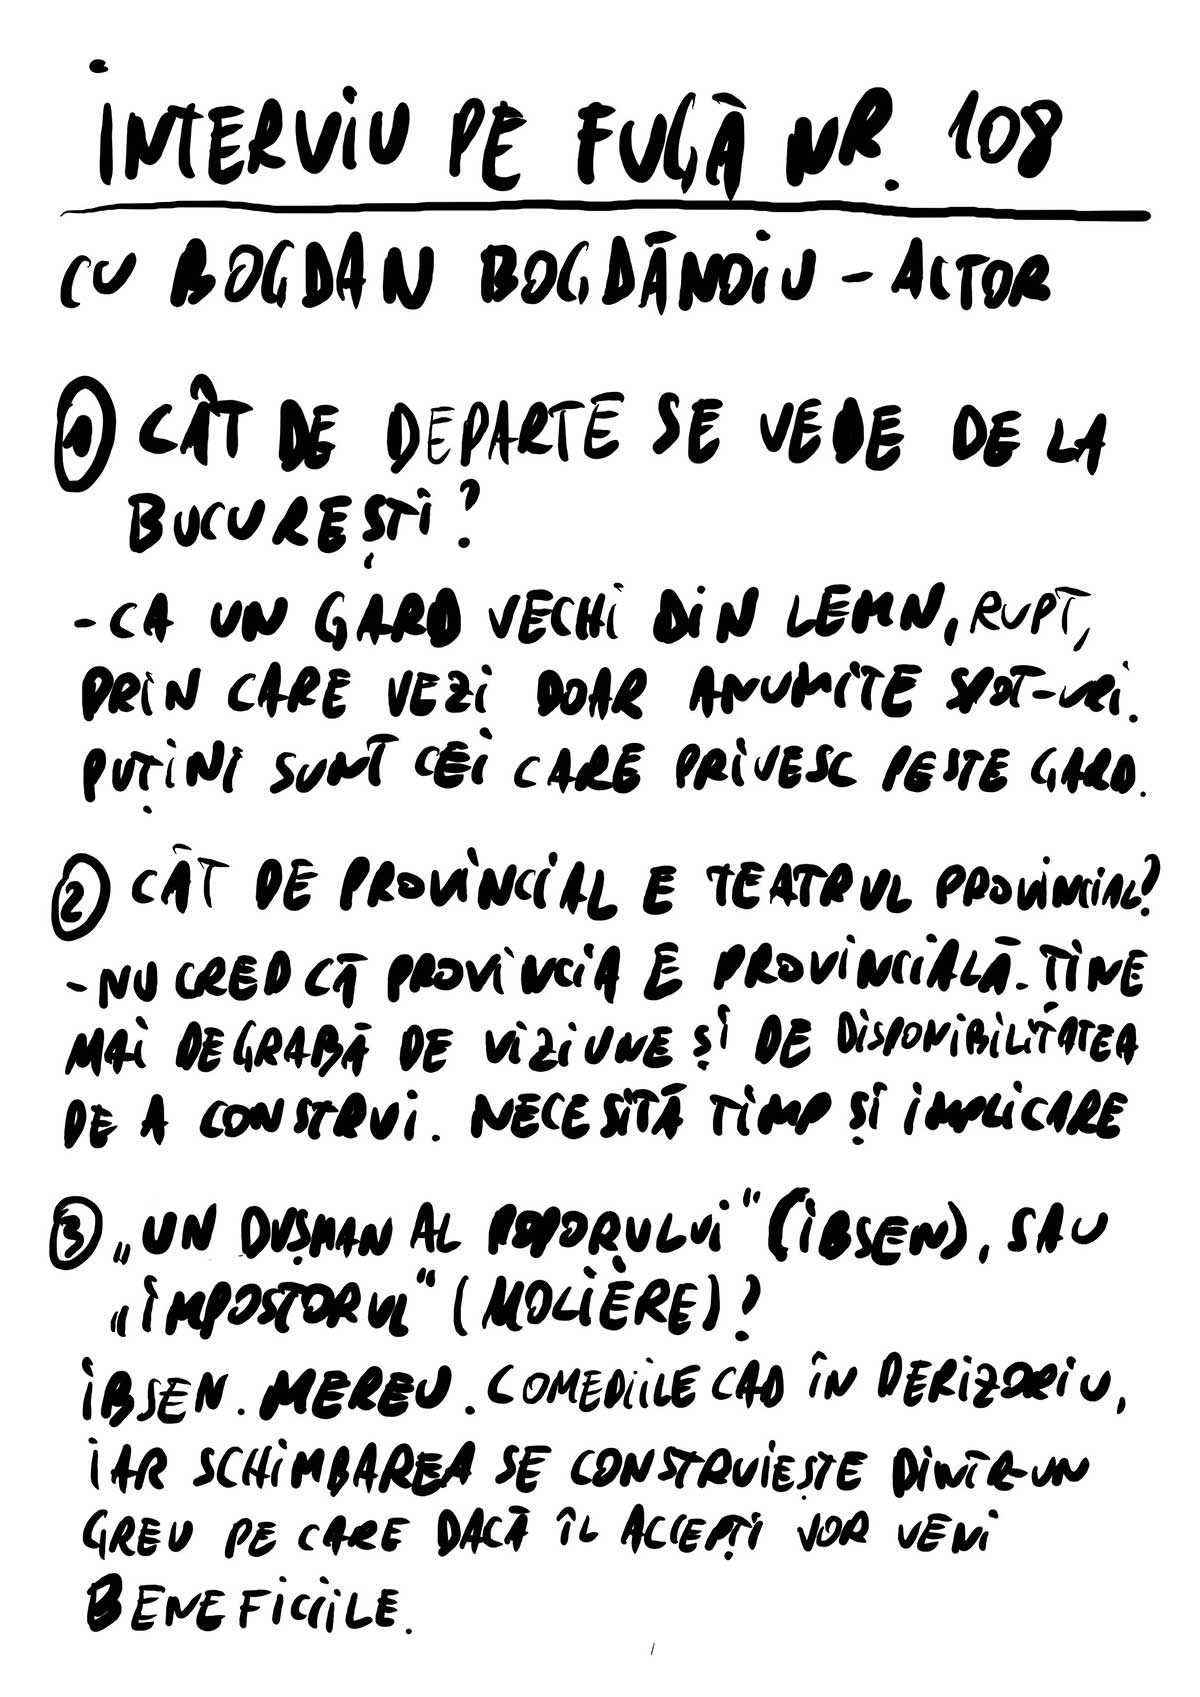 INTERVIU PE FUGĂ NR. 108
CU BOGDAN BOGDĂNOIU - ACTOR
1 CÂT DE DEPARTE SE VEDE DE LA
BUCUREȘTI?
- CA UN GARD VECHI DIN LEMN, RUPT,
PRIN CARE VEZI DOAR ANUMITE SPOT-URI.
PUȚINI SUNT CEI CARE PRIVESC PESTE GARD.
2 CÂT DE PROVINCIAL E TEATRUL PROVINCIAL?
- NU CRED CĂ PROVINCIA E PROVINCIALĂ. ȚINE
MAI DEGRABĂ DE VIZIUNE ȘI DE DISPONIBILITATEA
DE A CONSTRUI. NECESITĂ TIMP ȘI IMPLICARE
3 „UN DUȘMAN AL POPORULUI" (IBSEN), SAU
„IMPOSTORUL" (MOLIÈRE)?
IBSEN. MEREU. COMEDIILE CAD ÎN DERIZORIU,
IAR SCHIMBAREA SE CONSTRUIEȘTE DINTR-UN
GREU PE CARE DACĂ ÎL ACCEPȚI VOR VENI
BENEFICIILE.